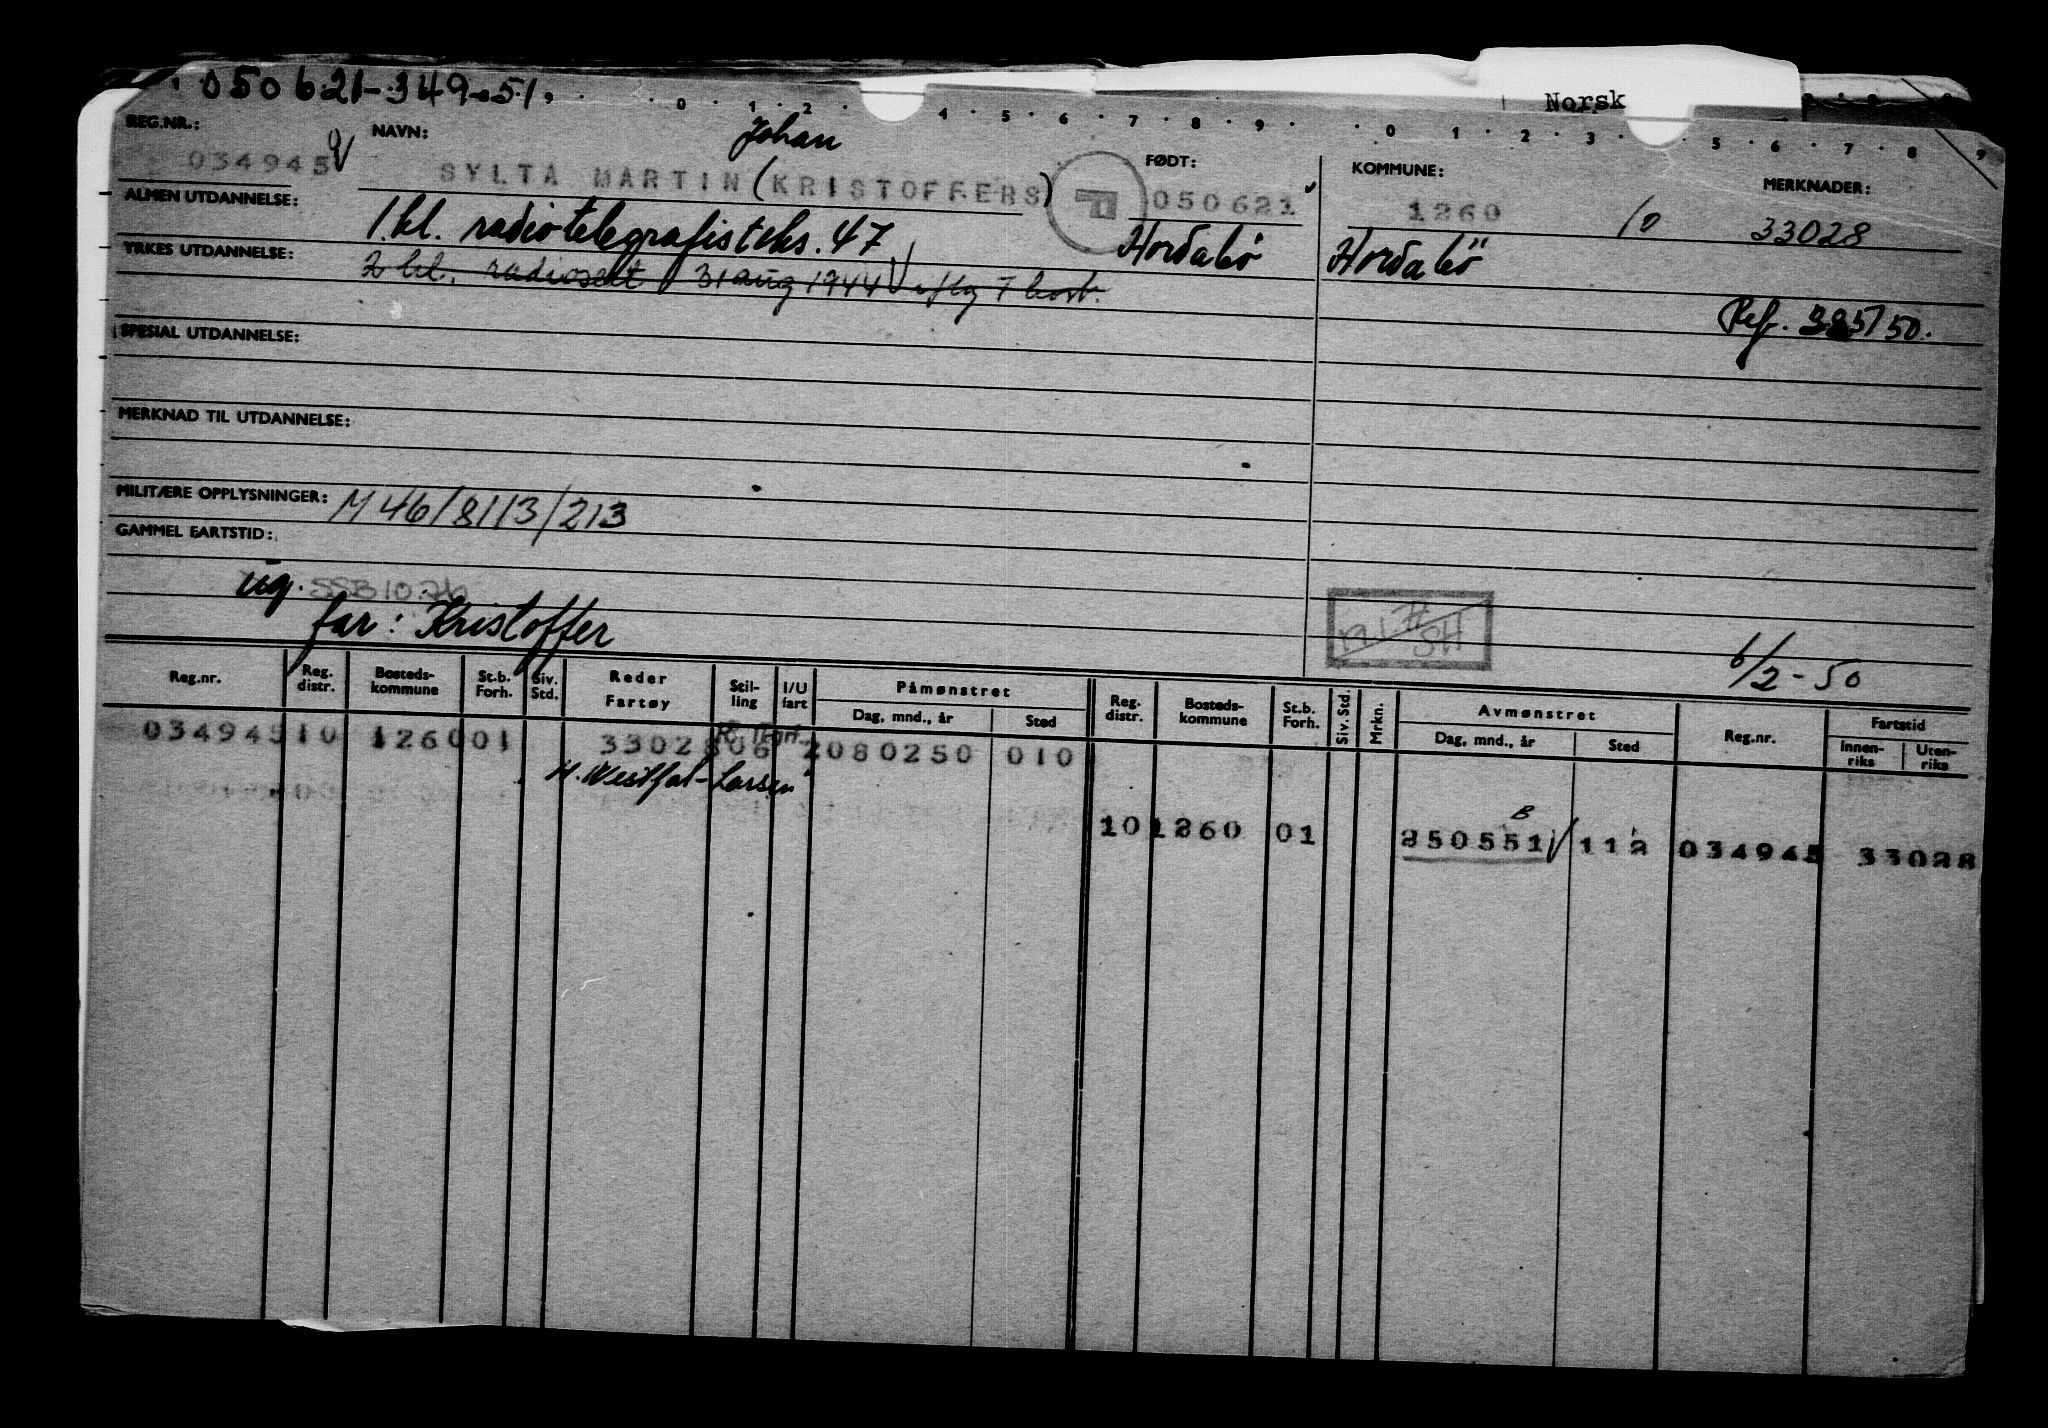 050621-349-51
Norsk
0 . 1 . 2 . 4 . 5 . 6 . 7 . 8 . 9 . 0 1 . 2 . 3 . 5 . 6 . 7 . 8 9
REG.NR.: NAVN: Johan FØDT: KOMMUNE: MERKNADER:
034945 SYLTA MARTIN (KRISTOFFERS) 050621 1260 10 33028
ALMEN UTDANNELSE: 1.kl. radiotelegrafisteks. 47 Hordabö Hordabö
YRKES UTDANNELSE: 2 kl. 31 aug 1944
Ref. 325/50.
SPESIAL UTDANNELSE:
MERKNAD TIL UTDANNELSE:
MILITÆRE OPPLYSNINGER: M46/8113/213
GAMMEL FARTSTID:
ug.
far: Kristoffer
6/2-50
Reg.nr. Reg. distr. Bosteds-kommune St.b. Forh. Siv. Std. Reder Fartøy Stil-ling I/U fart Påmønstret Dag, mnd., år Sted Reg. distr. Bosteds-kommune St.b. Forh. Siv. Std. Mrkn. Avmønstret Dag, mnd., år Sted Reg.nr. Fartstid Innen-riks Uten-riks
034945 10 1260 01 33028 06 2 080250 010
H. Westfal-Larsen
B
10 1260 01 250551 112 034945 33028